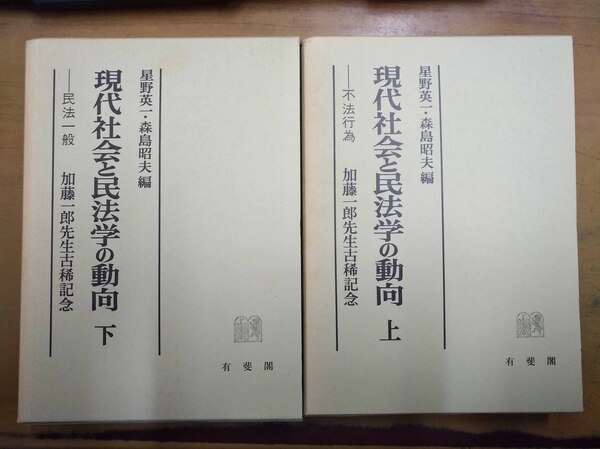 星野英一・森島昭夫 編
現代社会と民法学の動向 上
――不法行為
加藤一郎先生古稀記念
有斐閣
星野英一・森島昭夫 編
現代社会と民法学の動向 下
――民法一般
加藤一郎先生古稀記念
有斐閣